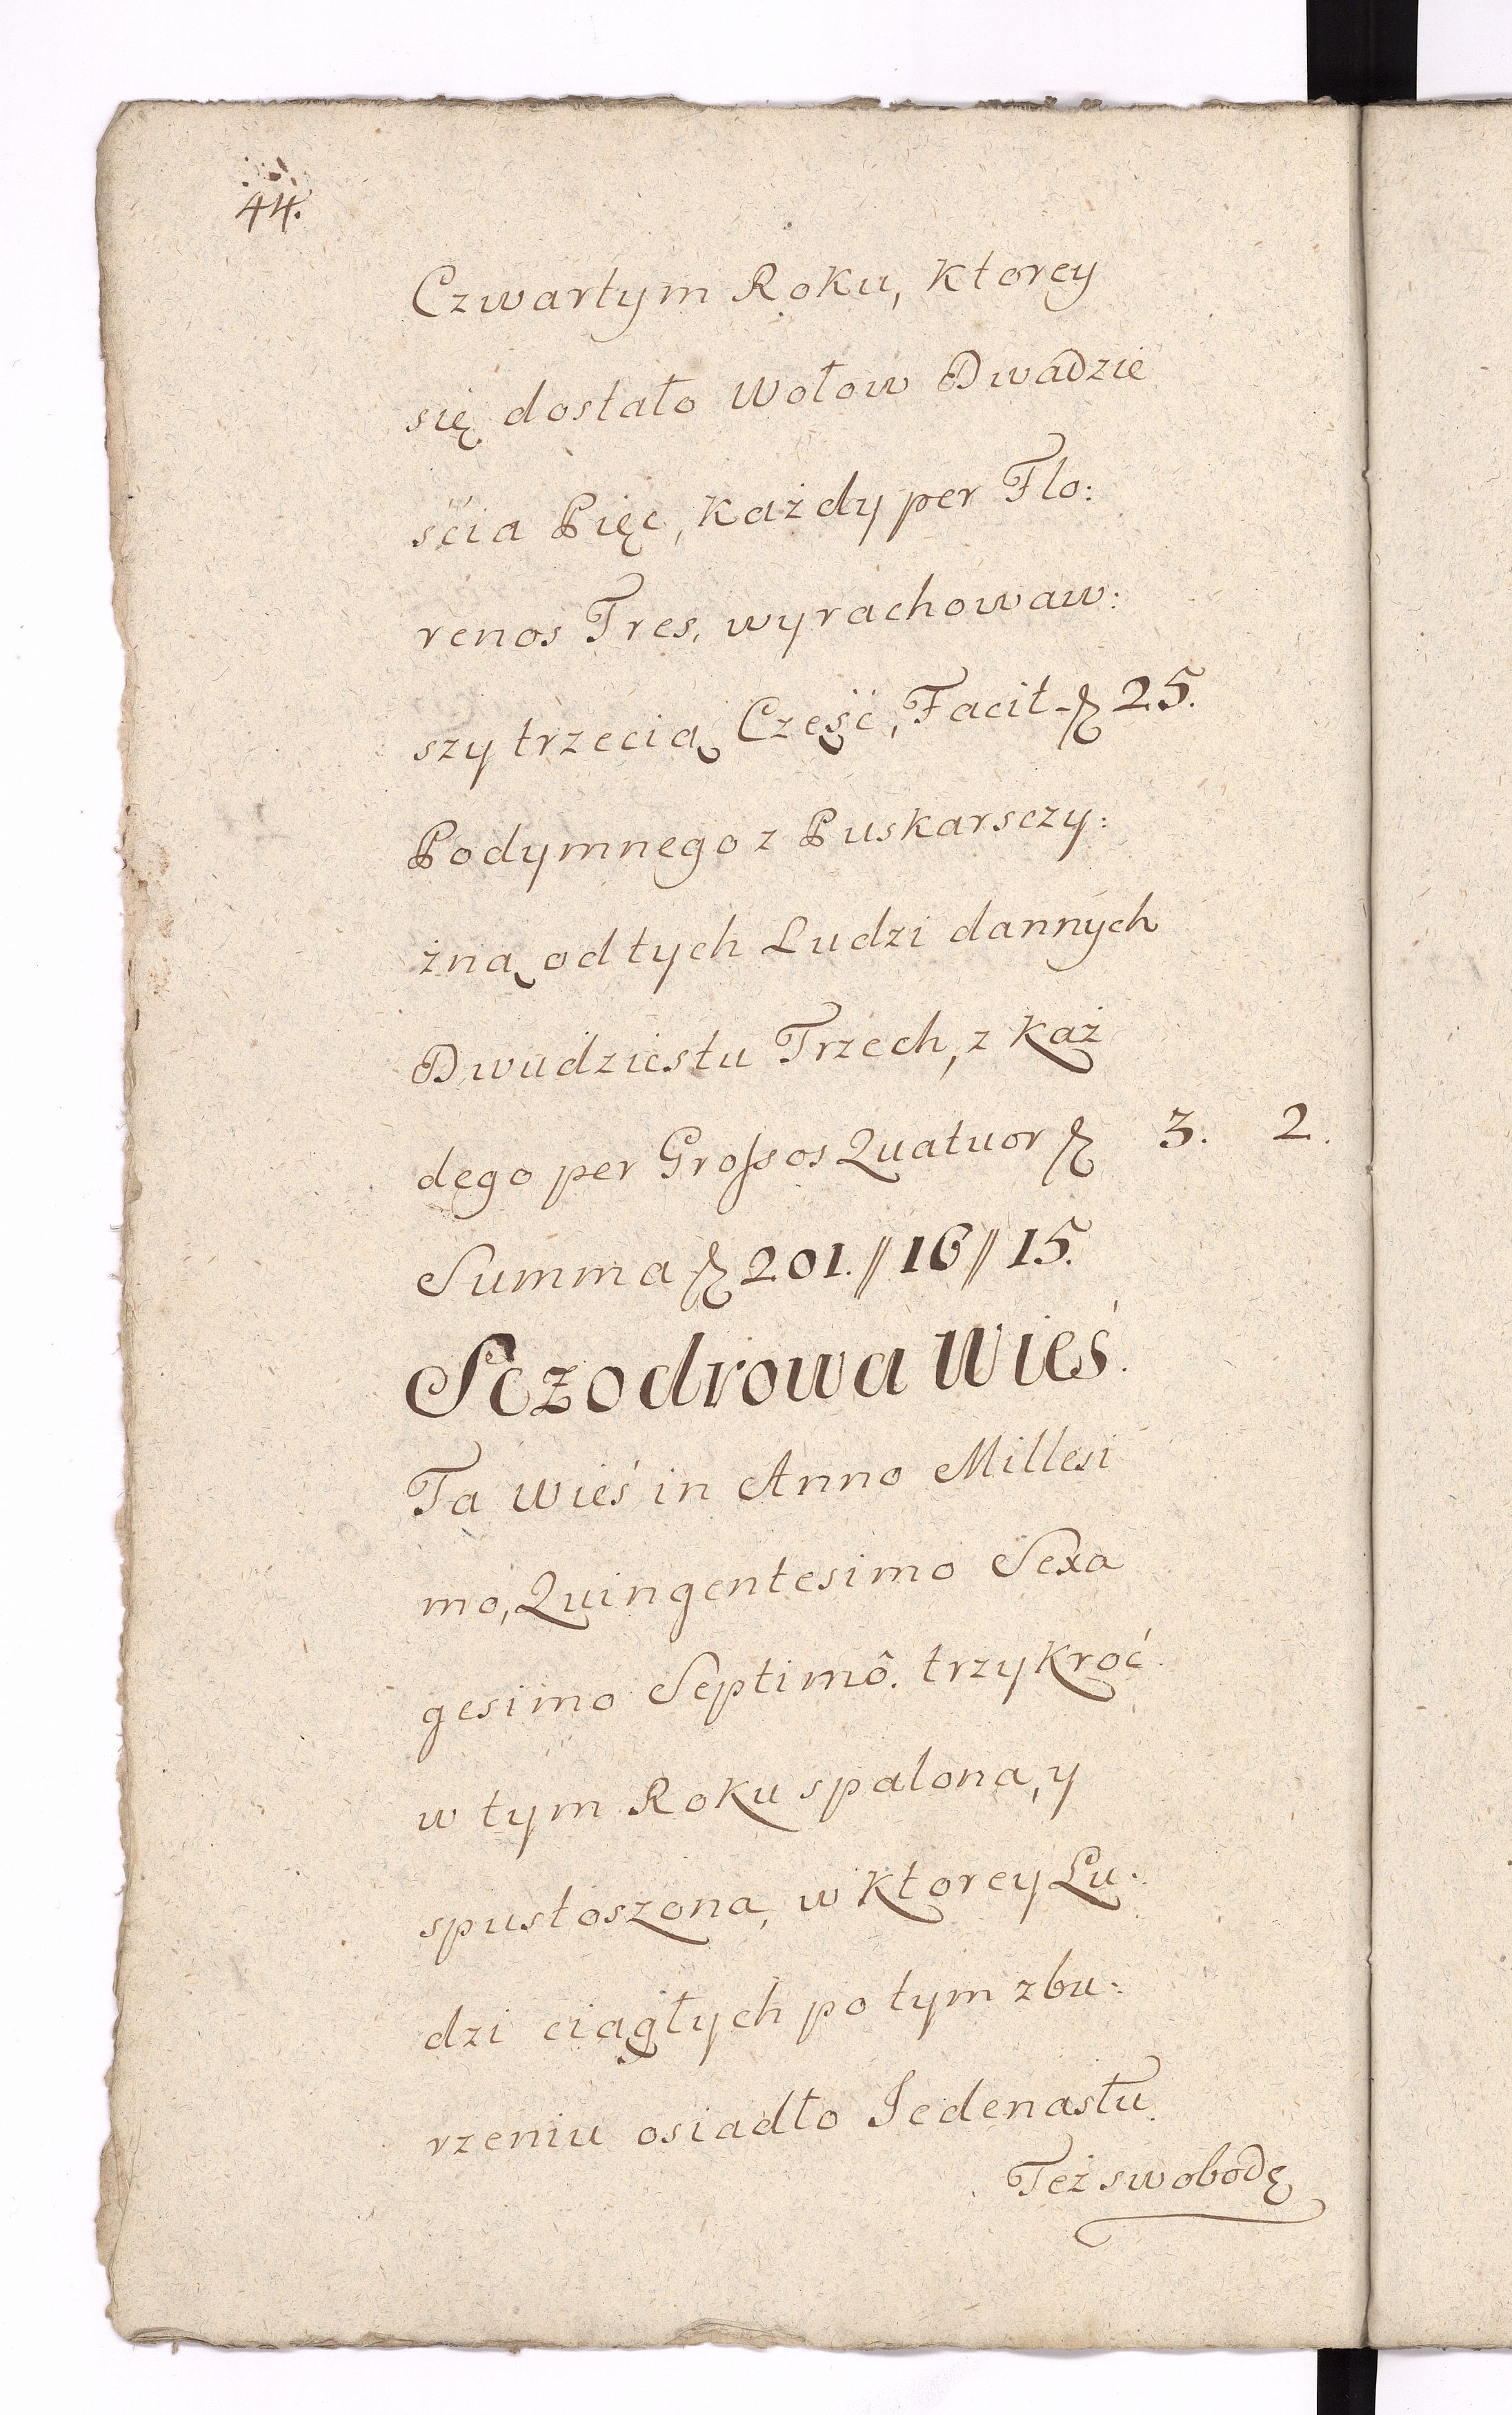 44.
Czwartym Roku, ktorey
się dostało Wołow Dwadzie
ścia Pięc, każdy per Flo:
renos Tres, wyrachowaw:
szy trzecią Częśc, Facit - ƒ 25.
Podymnego z Puskarsczy:
żną od tych Ludzi dannych
Dwudziestu Trzech, z każ
dego per Grossos Quatuor ƒ 3. 2.
Summa ƒ 201.//16//15.
Sczodrowa Wieś.
Ta Wieś in Anno Millesi
mo, Quingentesimo Sexa
gesimo Septimô. trzykroć
w tym Roku spalona, y
spustoszona, w ktorey Lu:
dzi ciągłych po tym zbu:
rzeniu osiadło Jedenastu.
Też swobodę